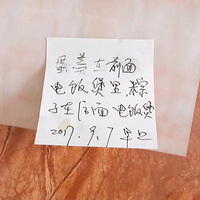 蛋羹在前面
电饭煲里粽
子在后面电饭煲
2017.9.7早上